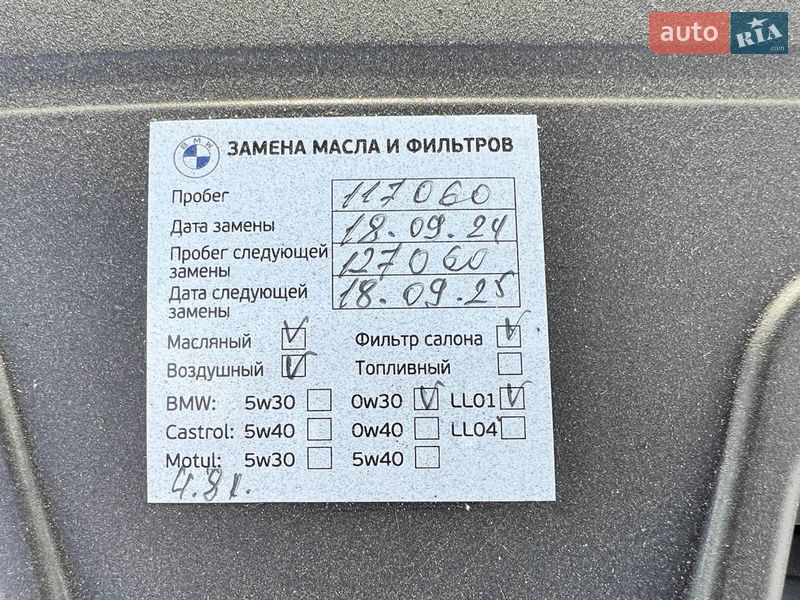 auto RIA .com
BMW
ЗАМЕНА МАСЛА И ФИЛЬТРОВ
Пробег 117060
Дата замены 18.09.24
Пробег следующей замены 127060
Дата следующей замены 18.09.25
Масляный V Фильтр салона V
Воздушный V Топливный
BMW: 5w30 0w30 V LL01 V
Castrol: 5w40 0w40 LL04
Motul: 5w30 5w40
4.8л.